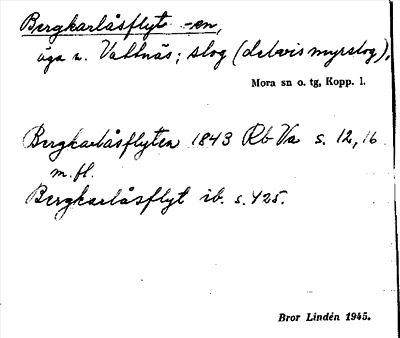 Bergkarlåsflyt -en,
äga n. Vattnäs; slog (delvis myrslog),
Mora sn o. tg, Kopp. l.
Bergkarlåsflyten 1843 Rb Va s. 12, 16
m. fl.
Bergkarlåsflyt ib. s. 425.
Bror Lindén 1945.